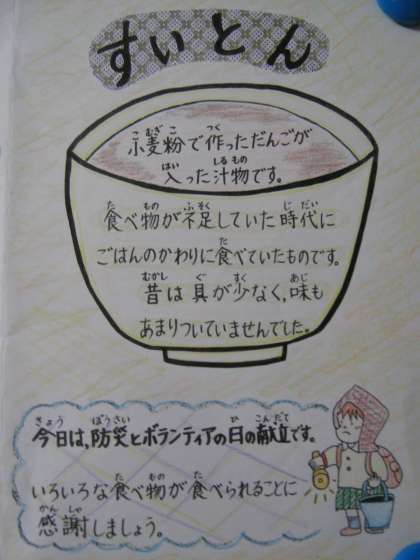 すいとん
小麦粉で作っただんごが
入った汁物です。
食べ物が不足していた時代に
ごはんのかわりに食べていたものです。
昔は具が少なく、味も
あまりついていませんでした。
今日は、防災とボランティアの日の献立です。
いろいろな食べ物が食べられることに
感謝しましょう。